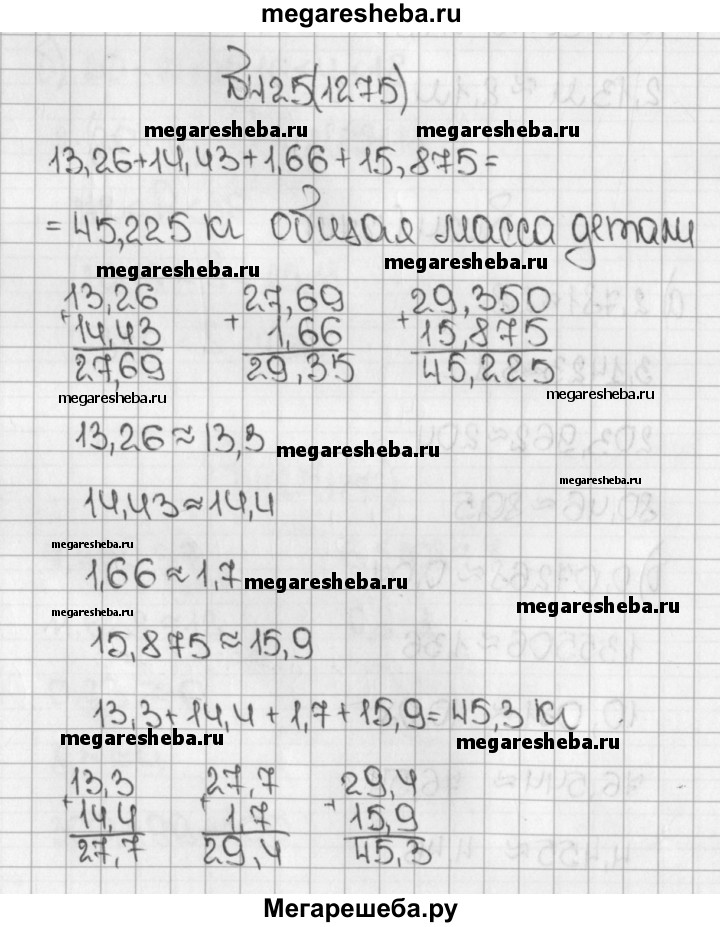 megaresheba.ru
№425(1275)
megaresheba.ru megaresheba.ru
13,26+14,43+1,66+15,875=
=45,225 кг общая масса детали
megaresheba.ru megaresheba.ru
13,26 27,69 29,350
+ + +
14,43 1,66 15,875
27,69 29,35 45,225
megaresheba.ru megaresheba.ru
13,26≈13,3 megaresheba.ru
megaresheba.ru
14,43≈14,4
megaresheba.ru
1,66≈1,7 megaresheba.ru
megaresheba.ru megaresheba.ru
15,875≈15,9
13,3+14,4+1,7+15,9=45,3 кг
megaresheba.ru megaresheba.ru
13,3 27,7 29,4
+ + +
14,4 1,7 15,9
27,7 29,4 45,3
Мегарешеба.ру